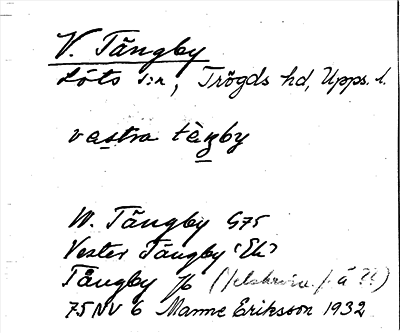 V. Tängby
Löts s:n, Trögds hd, Upps. l.
vastra tàŋby
W. Tängby G75
Vester Tängby 'Ek'
Tångby
75NV 6 Manne Eriksson 1932